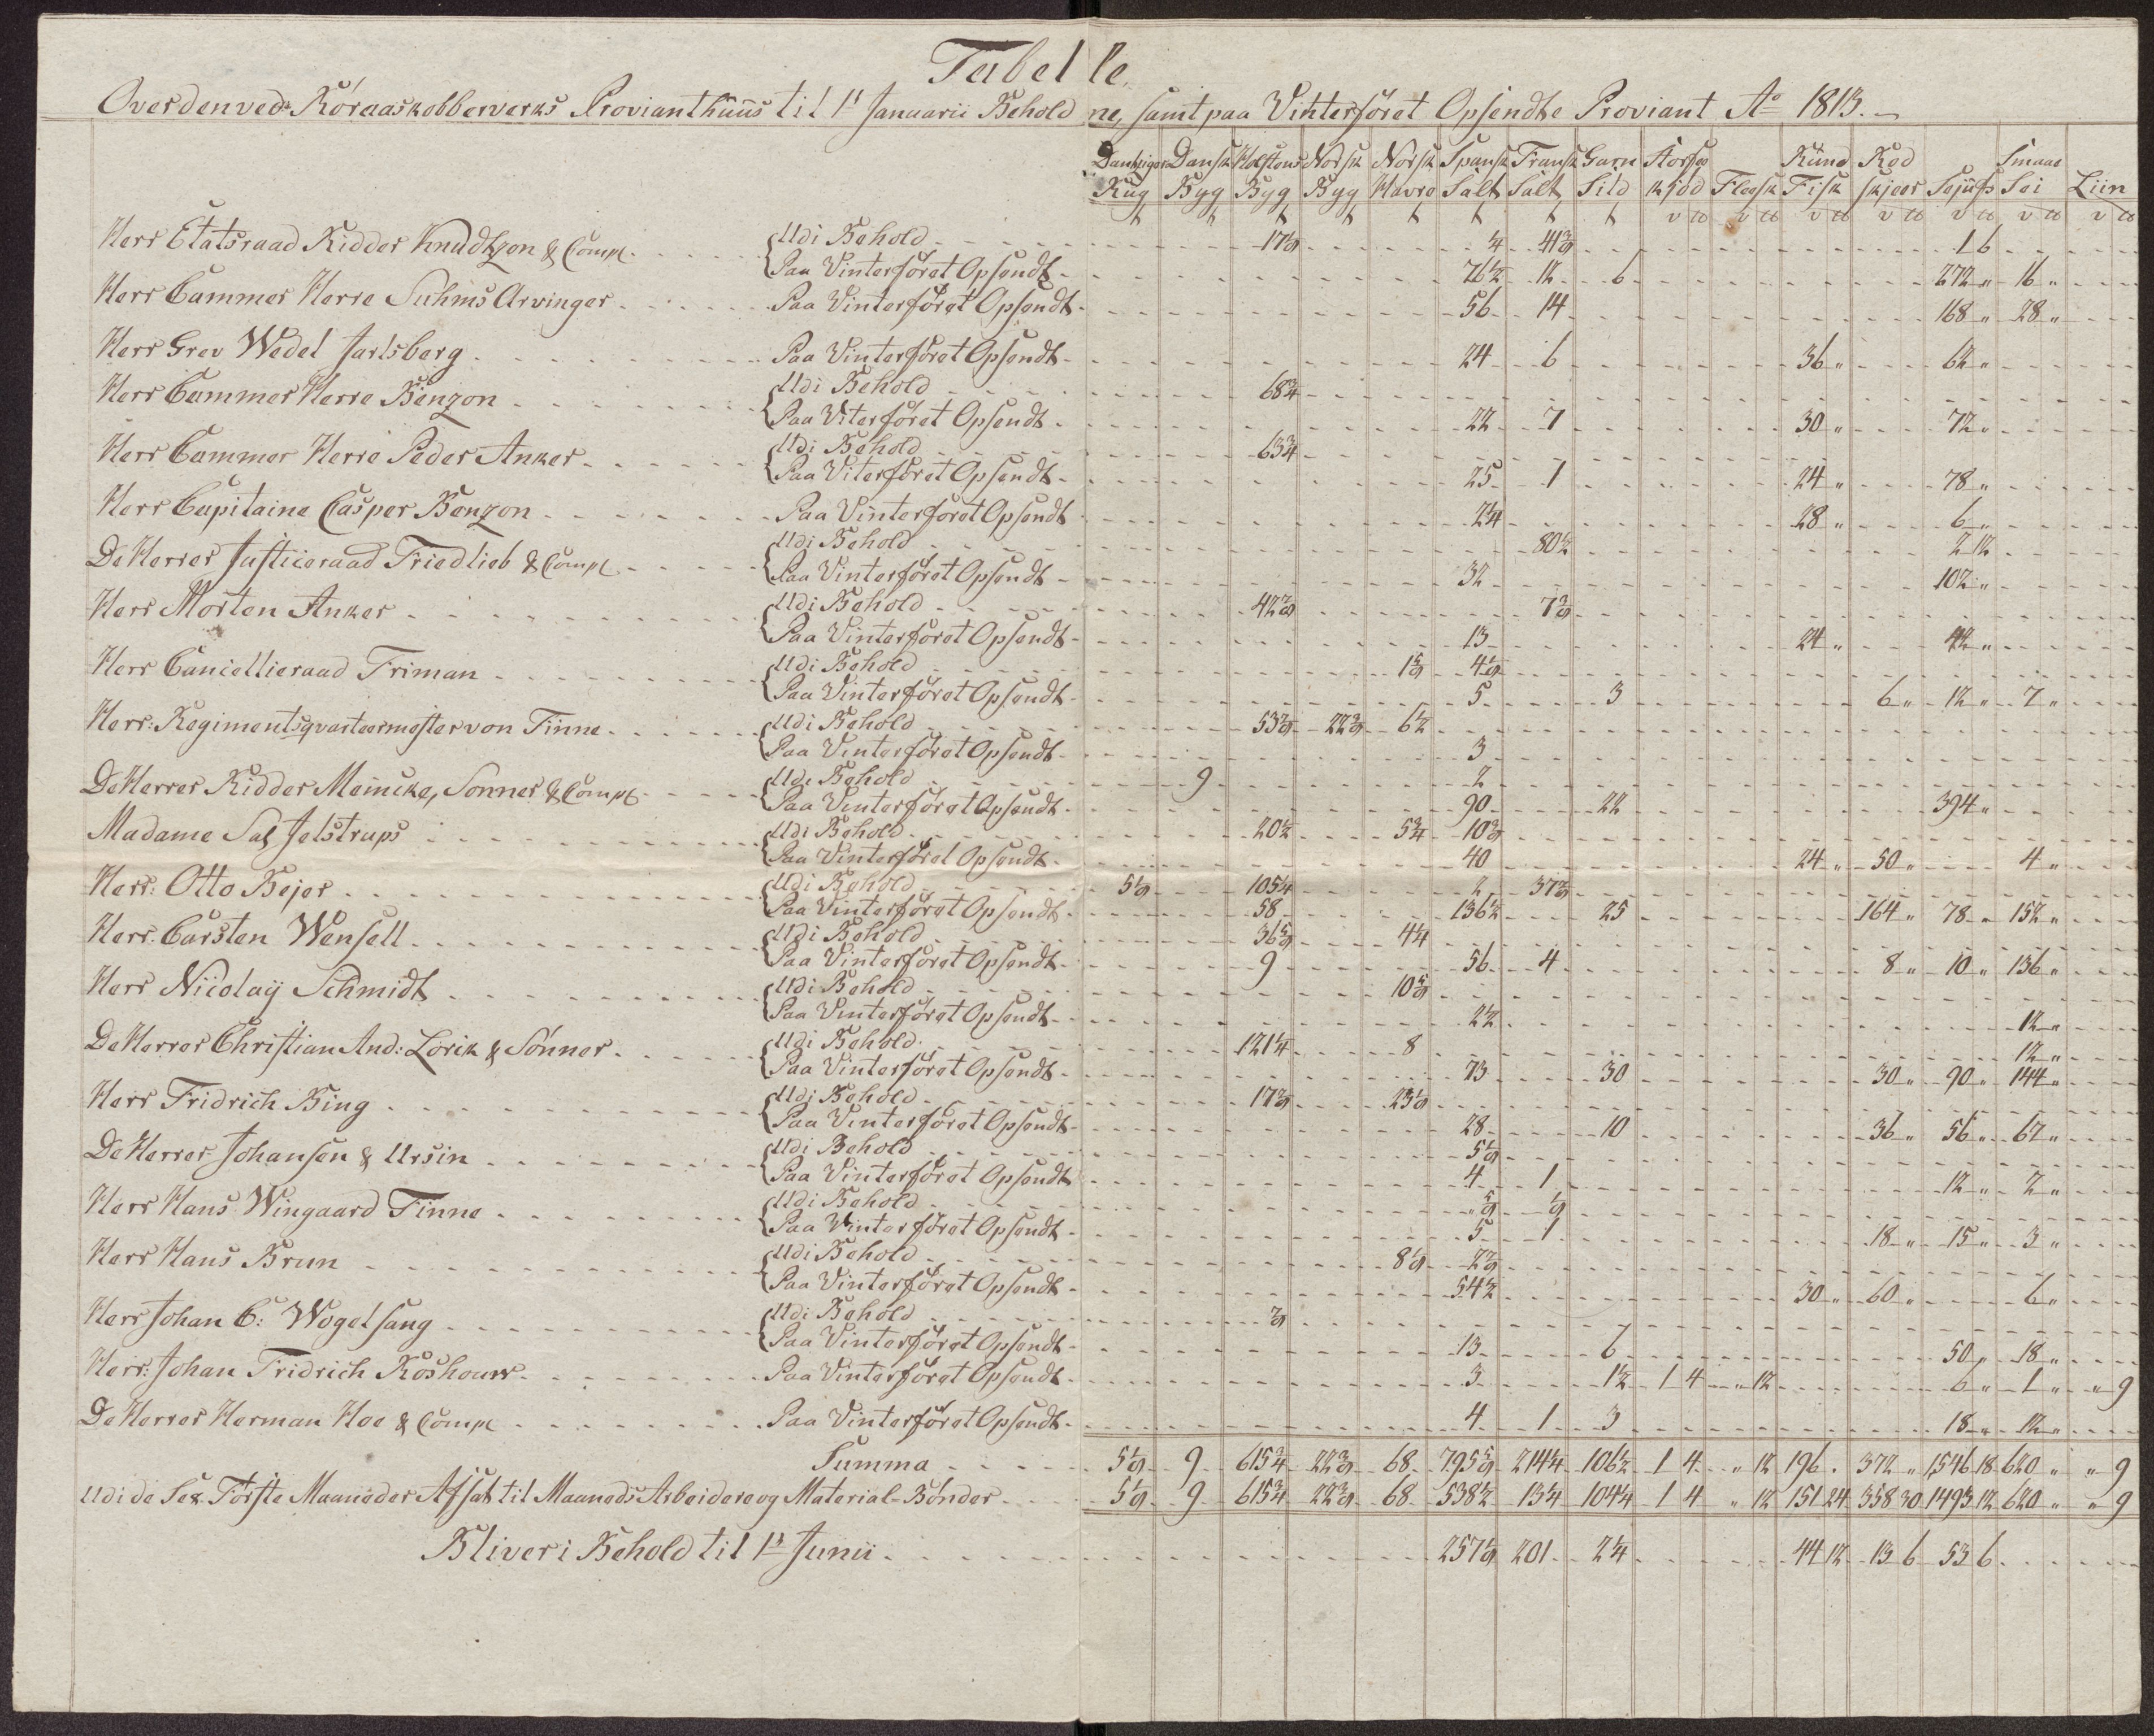 Tabelle
Over den ved Röraas kobberverks Provianthuus til 1t Januarii Beholdne, samt paa Vinterföret Opsendte Proviant Ao 1813.
Dantziger Dansk Holstens Norsk Norsk Spansk Fransk Garn Rund Rod Smaae
Rug Byg Byg Byg Havre Salt Salt Sild kjöd Flesk Fisk skjær Sejufs Sei Liin
Herr Etatsraad Ridder Knudtzon & Comp. Udi Behold 1/4 1 6
Paa Vinterföret Opsendt 76 1/2 12 6 272 " 16 "
Herr Cammer Herre Suhms Arvinger Paa Vinterföret Opsendt 56 14 168 " 28 "
Herr Grev Wedel Jarlsberg Paa Vinterföret Opsendt 24 6 36 " 62 "
Herr Cammer Herre Benzon Udi Behold 68 3/4
Paa Viterföret Opsendt 22 7 30 " 72 "
Herr Cammer Herre Peder Anker Udi Behold 63 3/4
Paa Viterföret Opsendt 25 1 24 " 78 "
Herr Capitaine Casper Benzon Paa Vinterföret Opsendt 28 " 6 "
De Herrer Justiceraad Friedlieb & Comp. Udi Behold 80 1/2 2 12
Paa Vinterföret Opsendt 32 102 "
Herr Morten Anker Udi Behold
Paa Vinterföret Opsendt 13 24 " 42 "
Herr Cancellieraad Friman Udi Behold
Paa Vinterföret Opsendt 5 3 6 " 12 " 7 "
Herr: Regimentsqvarteermester von Finne Udi Behold 6 1/2
Paa Vinterföret Opsendt 3
De Herrer Ridder Meincke, Sönner & Comp. Udi Behold 9 2
Paa Vinterföret Opsendt 90 22 394 "
Madame Sal. Jelstrups Udi Behold 20 1/2 5 3/4
Paa Vinterföret Opsendt 40 24 " 50 " 4 "
Herr: Otto Bejer Udi Behold 5 1/9 105 1/4 2
Paa Vinterföret Opsendt 58 136 1/2 25 164 " 78 " 152 "
Herr. Carsten Wensell Udi Behold 36 5/9 4 1/4
Paa Vinterföret Opsendt 9 56 4 8 " 10 " 136 "
Herr Nicolay Schmidt Udi Behold 10 5/9
Paa Vinterföret Opsendt 22 12 "
De Herrer Christian And: Lorck & Sönner Udi Behold 121 1/4 8 12 "
Paa Vinterföret Opsendt 73 30 30 " 90 " 144 "
Herr Fridrich Bing Udi Behold 23 1/9
Paa Vinterföret Opsendt 28 10 36 " 56 " 67 "
De Herrer Johansen & Ursin Udi Behold
Paa Vinterföret Opsendt 4 1 12 " 2 "
Herr Hans Wingaard Finne Udi Behold " 5/9 1/9
Paa Vinterföret Opsendt 5 1 18 " 15 " 3 "
Herr Hans Brun Udi Behold 8 1/9
Paa Vinterföret Opsendt 54 1/2 30 " 60 " 6 "
Herr Johan C: Wogelsang Udi Behold
Paa Vinterföret Opsendt 13 6 50 " 18 "
Herr: Johan Fridrich Roshouw Paa Vinterföret Opsendt 3 1 1/2 1 4 " 12 6 " 1 " " 9
De Herrer Herman Hoe & Comp Paa Vinterföret Opsendt 4 1 3 18 " 12 "
Summa 5 1/9 9 615 3/4 68 795 5/9 214 1/4 106 1/2 1 4 " 12 196 . 372 " 1546 18 620 " " 9
Udi de Sex Förste Maaneder Afsat til Maaneds Arbeidere og Material-Bönder 5 1/9 9 615 3/4 68 538 1/2 13 1/4 104 1/4 1 4 " 12 151 24 358 30 1493 12 620 " " 9
Bliver i Behold til 1t Junii 201 2 1/4 44 12 13 6 53 6